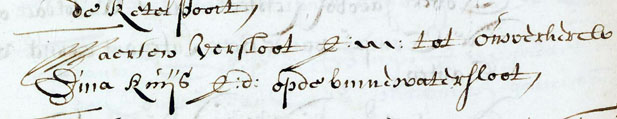 de Ketelpoort
Maerten Versloot J: M: tot Ouwerkerck
Dina Knijs J: d: opde binnewatersloot